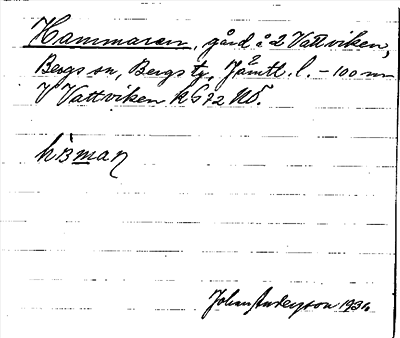 Hammaren, gård å 2 Vattviken,
Bergs sn, Bergs tg, Jämtl. l. – 100 m
V Vattviken kG72 NÖ.
Johan Anderson 1936